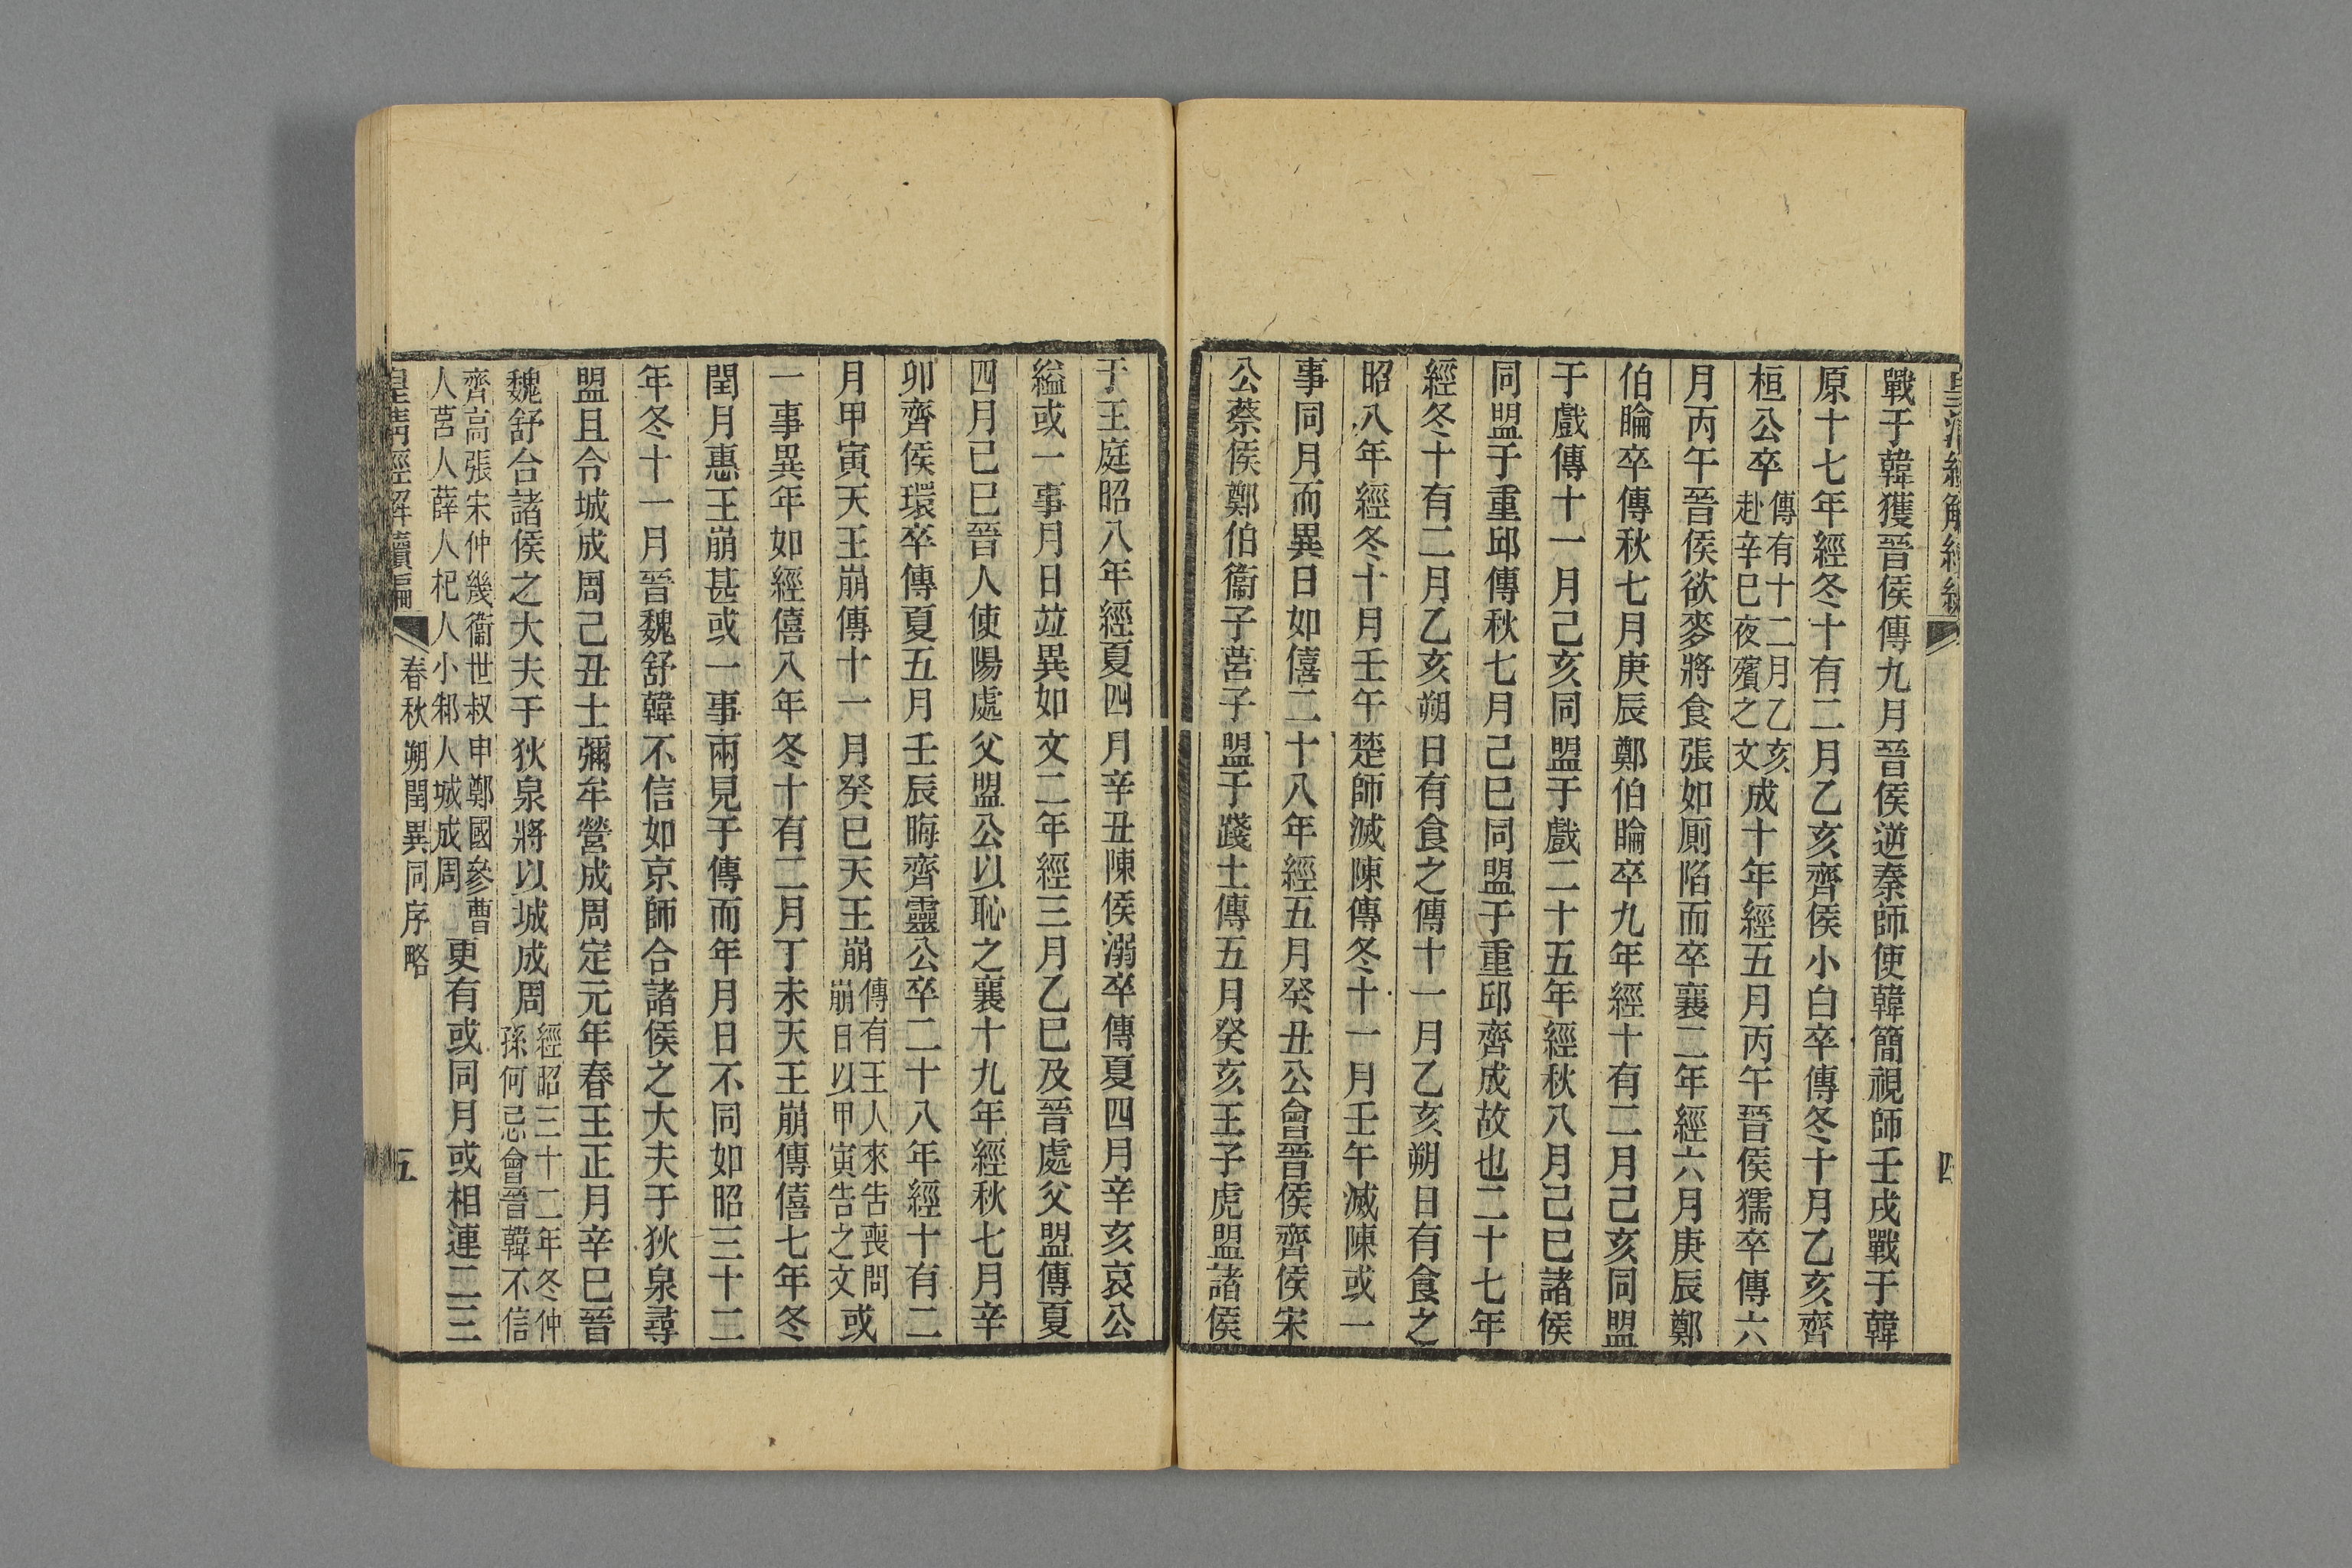 戰于韓獲晉侯傳九月晉侯逆秦師使韓簡視師壬戌戰于韓
原十七年經冬十有二月乙亥齊侯小白卒傳冬十月乙亥齊
桓公卒傳有十二月乙亥赴辛巳夜殯之文成十年經五月丙午晉侯獳卒傳六
月丙午晉侯欲麥將食張如廁陷而卒襄二年經六月庚辰鄭
伯睔卒傳秋七月庚辰鄭伯睔卒九年經十有二月己亥同盟
于戲傳十一月己亥同盟于戲二十五年經秋八月己巳諸侯
同盟于重邱傳秋七月己巳同盟于重邱齊成故也二十七年
經冬十有二月乙亥朔日有食之傳十一月乙亥朔日有食之
昭八年經冬十月壬午楚師滅陳傳冬十一月壬午滅陳或一
事同月而異日如僖二十八年經五月癸丑公會晉侯齊侯宋
公蔡侯鄭伯衞子莒子盟于踐土傳五月癸亥王子虎盟諸侯
于王庭昭八年經夏四月辛丑陳侯溺卒傳夏四月辛亥哀公
縊或一事月日竝異如文二年經三月乙巳及晉處父盟傳夏
四月己巳晉人使陽處父盟公以恥之襄十九年經秋七月辛
卯齊侯環卒傳夏五月壬辰晦齊靈公卒二十八年經十有二
月甲寅天王崩傳十一月癸巳天王崩傳有王人來告喪問崩日以甲寅告之文或
一事異年如經僖八年冬十有二月丁未天王崩傳僖七年冬
閏月惠王崩甚或一事兩見于傳而年月日不同如昭三十二
年冬十一月晉魏舒韓不信如京師合諸侯之大夫于狄泉尋
盟且令城成周己丑士彌牟營成周定元年春王正月辛巳晉
魏舒合諸侯之大夫于狄泉將以城成周經昭三十二年冬仲孫何忌會晉韓不信
齊高張宋仲幾衞世叔申鄭國參曹人莒人薛人杞人小邾人城成周更有或同月或相連二三
皇清經解續編 春秋朔閏異同序略 五